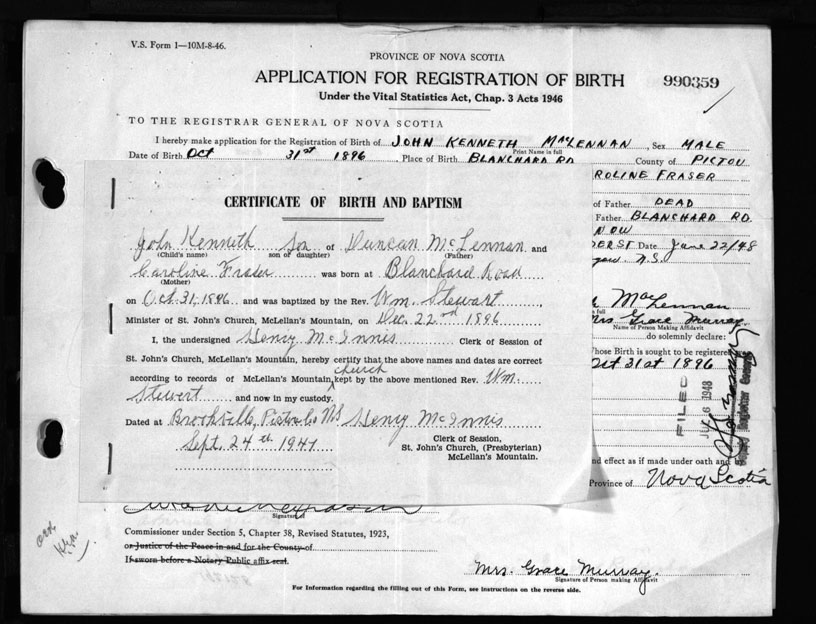 V.S. Form 1—10M-8-46.
PROVINCE OF NOVA SCOTIA
APPLICATION FOR REGISTRATION OF BIRTH
990359
Under the Vital Statistics Act, Chap. 3 Acts 1946
TO THE REGISTRAR GENERAL OF NOVA SCOTIA
I hereby make application for the Registration of Birth of JOHN KENNETH MacLENNAN, Sex MALE
Print Name in full
Date of Birth Oct 31st 1896, Place of Birth BLANCHARD RD County of PICTOU
ROLINE FRASER
of Father DEAD
Father BLANCHARD RD.
NOW
Date June 22/48
N.S.
MacLennan
Mrs Grace Murray
Name of Person Making Affidavit
do solemnly declare:
hose Birth is sought to be registered
Oct 31st 1896
FILED
1948
nd effect as if made under oath and
Province of Nova Scotia
CERTIFICATE OF BIRTH AND BAPTISM
John Kenneth son of Duncan McLennan and
(Child's name) son of daughter) (Father)
Caroline Fraser was born at Blanchard Road
(Mother)
on Oct. 31, 1896 and was baptized by the Rev. Wm. Stewart
Minister of St. John's Church, McLellan's Mountain, on Dec. 22nd 1896
I, the undersigned Henry McInnis Clerk of Session of
St. John's Church, McLellan's Mountain, hereby certify that the above names and dates are correct
according to records of McLellan's Mountain church kept by the above mentioned Rev. Wm.
Stewert and now in my custody.
Dated at Brookville, Pictou Co NS Henry McInnis
Sept. 24th. 1947
Clerk of Session,
St. John's Church, (Presbyterian)
McLellan's Mountain.
Signature of
Commissioner under Section 5, Chapter 38, Revised Statutes, 1923,
or Justice of the Peace in and for the County of
If sworn before a Notary Public affix seal.
Mrs. Grace Murray.
Signature of Person making Affidavit
For Information regarding the filling out of this Form, see instructions on the reverse side.